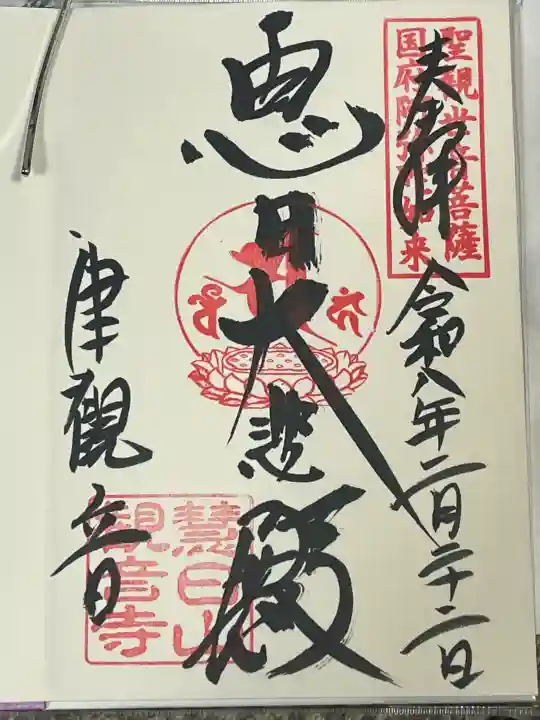 奉拝
聖観世音菩薩
国府阿弥陀如来
令和八年二月二十二日
恵日大悲殿
津観音
慧日山
観音寺